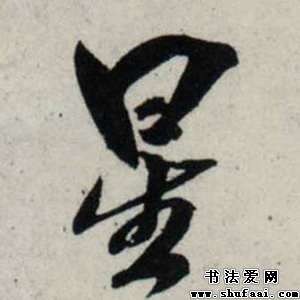 星
书法爱网
www.shufaai.com